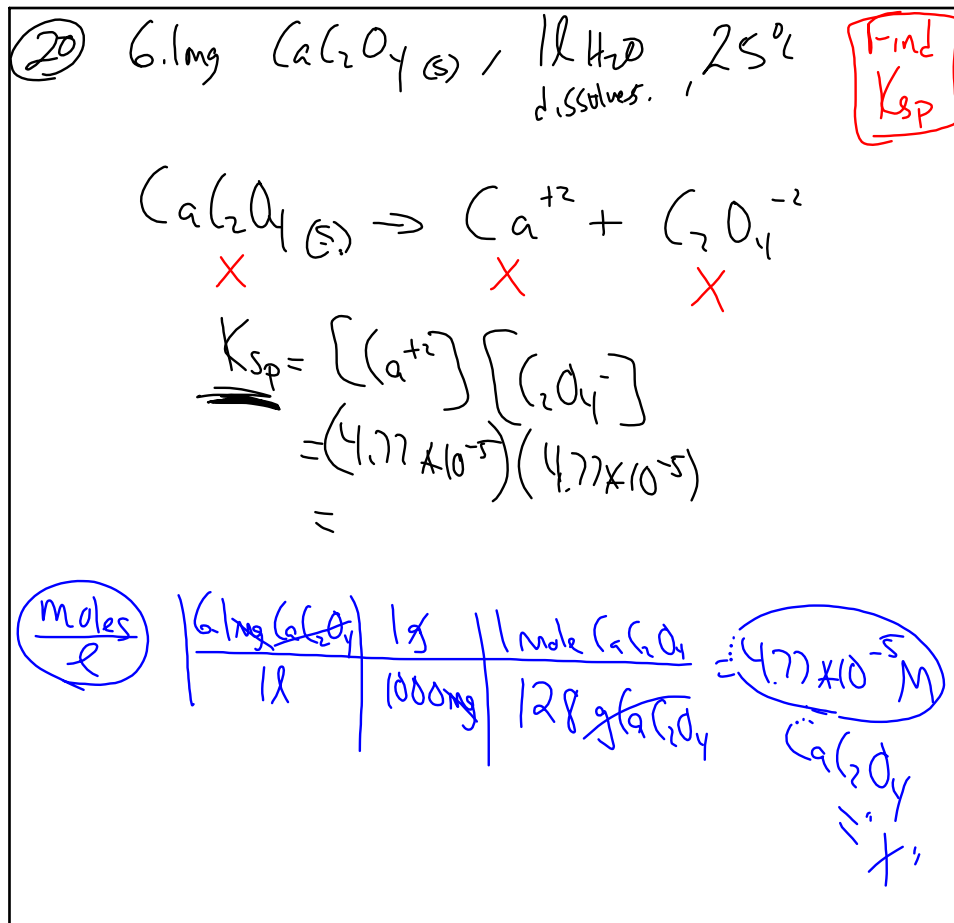 20 6.1mg CaC₂O₄ (s) , 1l H₂O , 25°C
dissolves.
Find
Ksp
CaC₂O₄ (s) ⇒ Ca⁺² + C₂O₄⁻²
X X X
Ksp = [Ca⁺²] [C₂O₄⁻]
= (4.77 x 10⁻⁵) (4.77 x 10⁻⁵)
=
moles 6.1mg CaC₂O₄ 1g 1 mole CaC₂O₄ = 4.77 x 10⁻⁵ M
l 1l 1000mg 128 g CaC₂O₄
CaC₂O₄
= "
x"